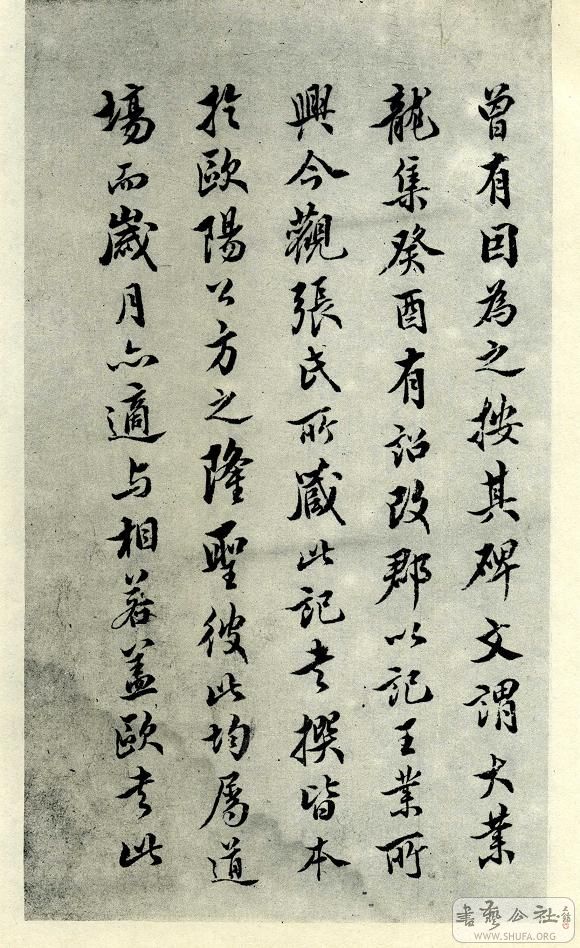 曾有因為之按其碑文謂大業
龍集癸酉有詔改郡以記王業所
興今觀張氏所藏此記書撰皆本
於歐陽公方之隆聖彼此均屬道
場而歲月亦適与相若蓋歐書此
書藝公社
WWW.SHUFA.ORG